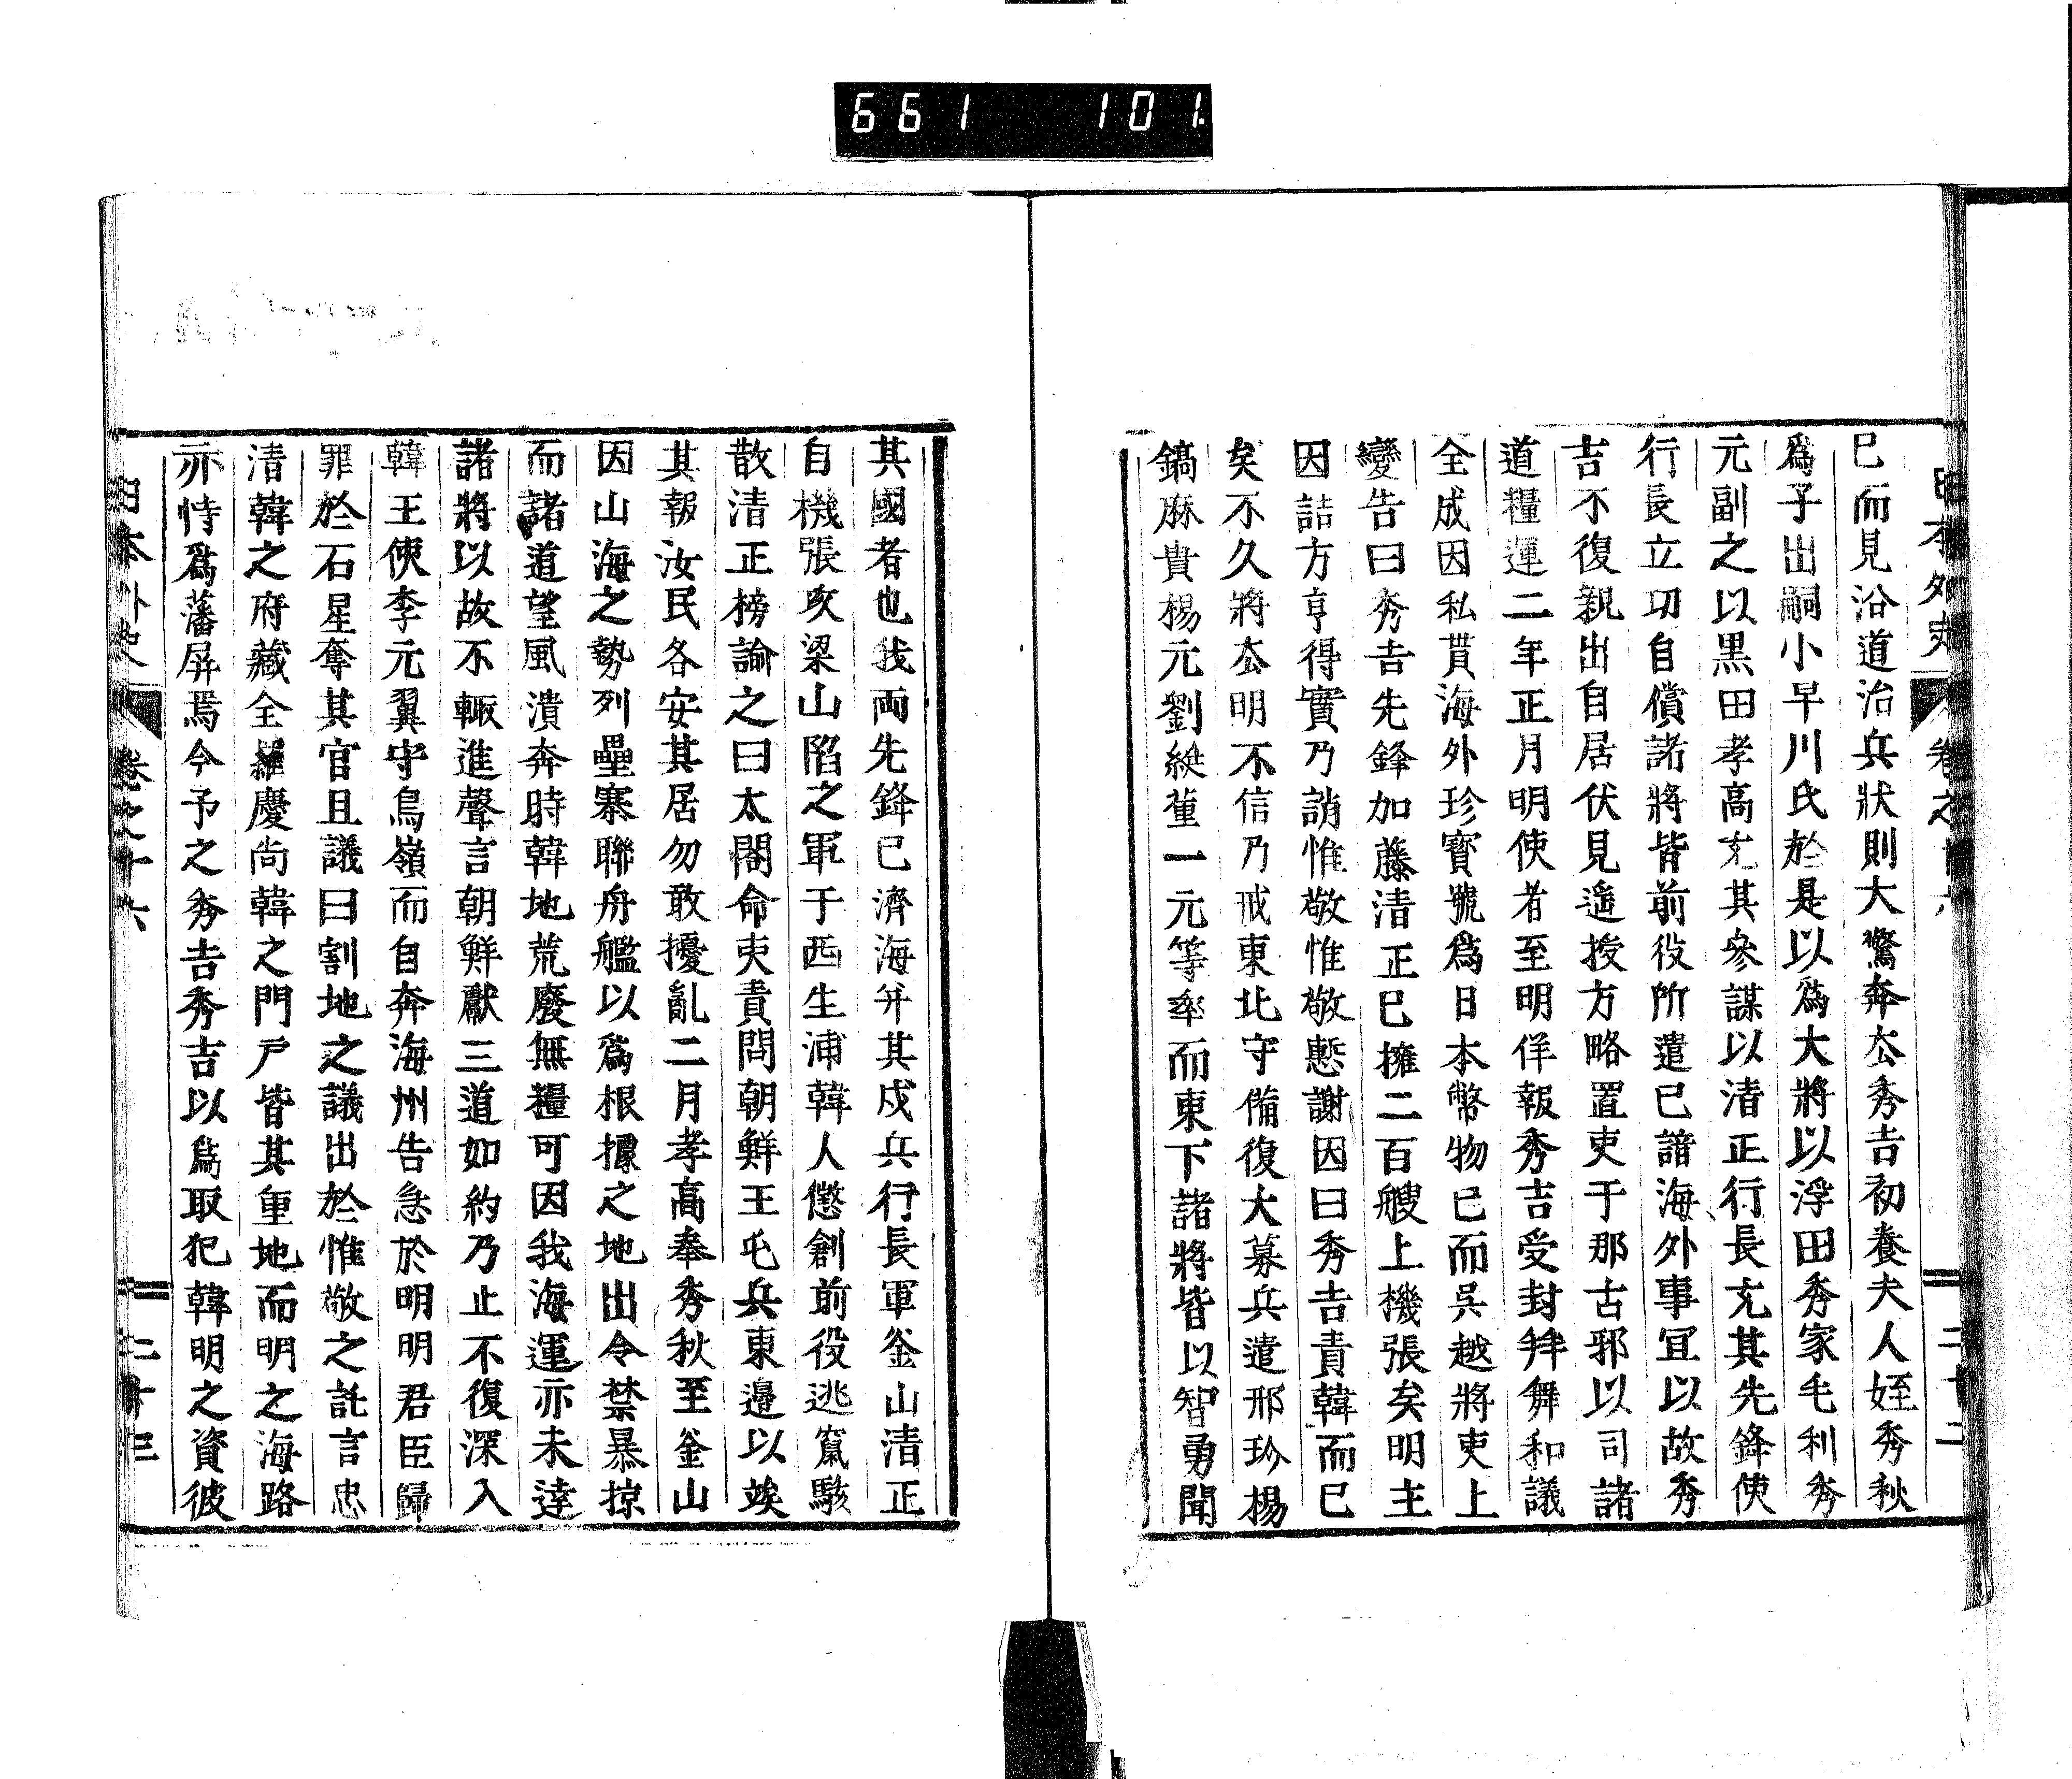 661 101
日本外史 卷之十六 二十二
已而見沿道治兵狀則大驚奔去秀吉初養夫人姪秀秋
爲子出嗣小早川氏於是以爲大將以浮田秀家毛利秀
元副之以黒田孝高充其參謀以清正行長充其先鋒使
行長立功自償諸將皆前役所遣已諳海外事冝以故秀
吉不復親出自居伏見遥授方略置吏于那古邪以司諸
道糧運二年正月明使者至明佯報秀吉受封拜舞和議
全成因私買海外珍寳號爲日本幣物已而吳越將吏上
變告曰秀吉先鋒加藤清正已擁二百艘上機張矣明主
因詰方亨得實乃誚惟敬惟敬慙謝因曰秀吉責韓而已
矣不久將去明不信乃戒東北守備復大募兵遣邢玠楊
鎬麻貴楊元劉綎董一元等率而東下諸將皆以智勇聞
其國者也我兩先鋒已濟海并其戍兵行長軍釜山清正
自機張攻梁山陷之軍于西生浦韓人懲創前役逃竄駭
散清正榜諭之曰太閤命吏責問朝鮮王屯兵東邊以竢
其報汝民各安其居勿敢擾亂二月孝高奉秀秋至釜山
因山海之勢列壘寨聯舟艦以爲根據之地出令禁暴掠
而諸道望風潰奔時韓地荒廢無糧可因我海運亦未達
諸將以故不輙進聲言朝鮮獻三道如約乃止不復深入
韓王使李元翼守鳥嶺而自奔海州告急於明明君臣歸
罪於石星奪其官且議曰割地之議出於惟敬之託言忠
清韓之府藏全羅慶尚韓之門戸皆其重地而明之海路
亦恃爲藩屏焉今予之秀吉秀吉以爲取犯韓明之資彼
日本外史 卷之十六 二十三